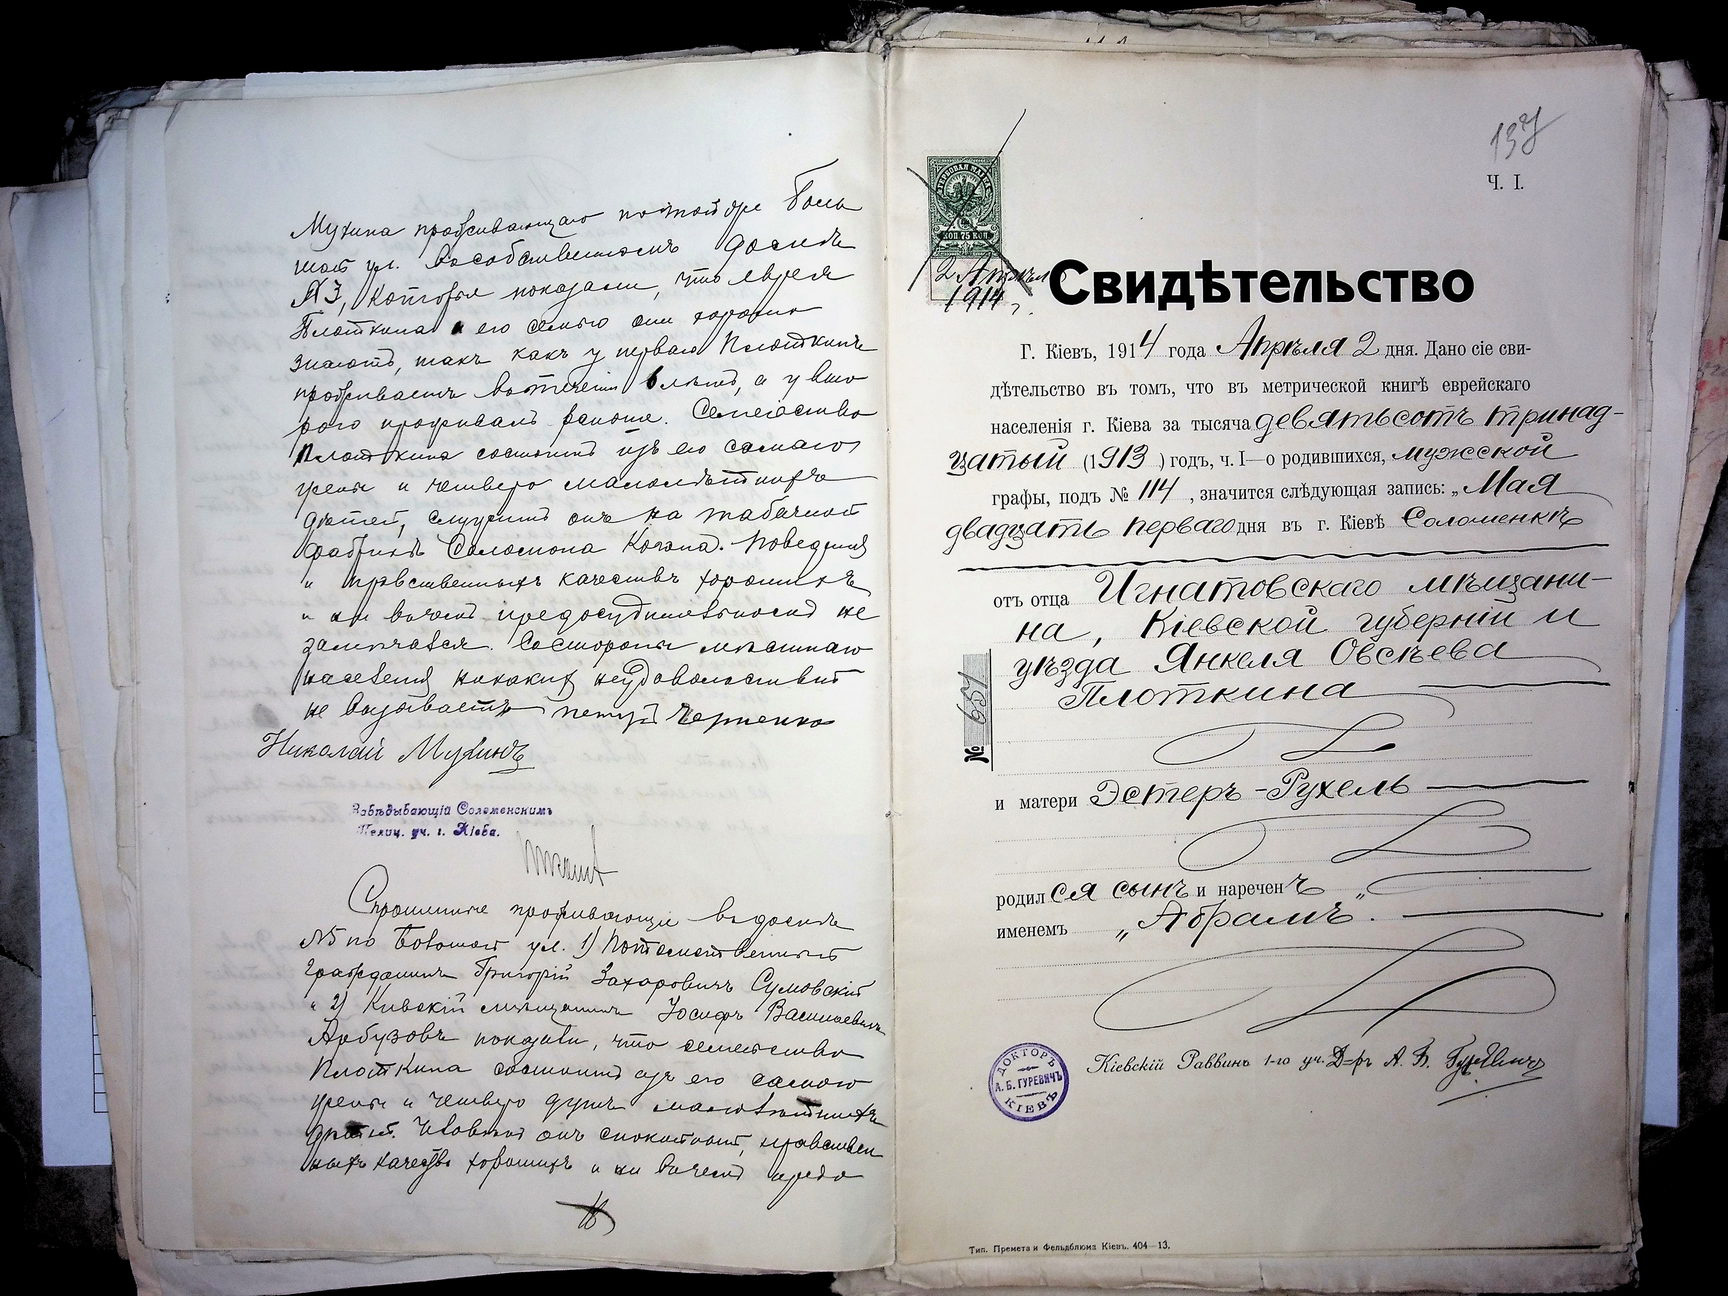 Мухина проживающаго по той же Боль
шой ул. въ собственномъ домѣ
№3, которые показали, что еврея
Плоткина и его семью они хорошо
знаютъ, такъ какъ у перваго Плоткинъ
проживаетъ въ теченіи 6 лѣтъ, а у вто
рого проживалъ раньше. Семейство
Плоткина состоитъ изъ его самого
жены и четверо малолѣтнихъ
дѣтей, служитъ онъ на табачной
фабрикѣ Соломона Когена. Поведенія
и нравственныхъ качествъ хорошихъ
и ни въ чемъ предосудительномъ не
замѣчался. Со стороны мѣстнаго
населенія никакихъ неудовольствій
не вызываетъ Черненко
Николай Мухинъ
Завѣдывающій Соломенскимъ
Полиц. уч. г. Кіева.
Спрошенные проживающіе въ домѣ
№5 по Большой ул. 1) Потомственный
гражданинъ Григорій Захаровичъ Сумовскій
и 2) Кіевскій мѣщанинъ Іосифъ Васильевичъ
Арбузовъ показали, что семейство
Плоткина состоитъ изъ его самого
жены и четверо душъ малолѣтнихъ
дѣтей. Человѣкъ онъ спокойный, нравствен
ныхъ качествъ хорошихъ и ни въ чемъ предо
137
Ч. I.
ГЕРБОВАЯ МАРКА
КОП. 75 КОП.
2 Апрѣля
1914 г.
Свидѣтельство
Г. Кіевъ, 1914 года Апрѣля 2 дня. Дано сіе сви-
дѣтельство въ томъ, что въ метрической книгѣ еврейскаго
населенія г. Кіева за тысяча девятьсотъ тринад-
цатый (1913) годъ, ч. I—о родившихся, мужской
графы, подъ № 114, значится слѣдующая запись: „Мая
двадцать перваго дня въ г. Кіевѣ Соломенкѣ
отъ отца Игнатовскаго мѣщани-
на, Кіевской губерніи и
уѣзда Янкеля Овсѣева
Плоткина
№ 651
и матери Эстеръ-Рухель
родился сынъ и нареченъ
именемъ „Абрамъ".
ДОКТОРЪ
А. Б. ГУРЕВИЧЪ
КІЕВЪ
Кіевскій Раввинъ 1-го уч. Д-ръ А. Б. Гуревичъ
Тип. Премета и Фельдблюмъ Кіевъ. 404—13.